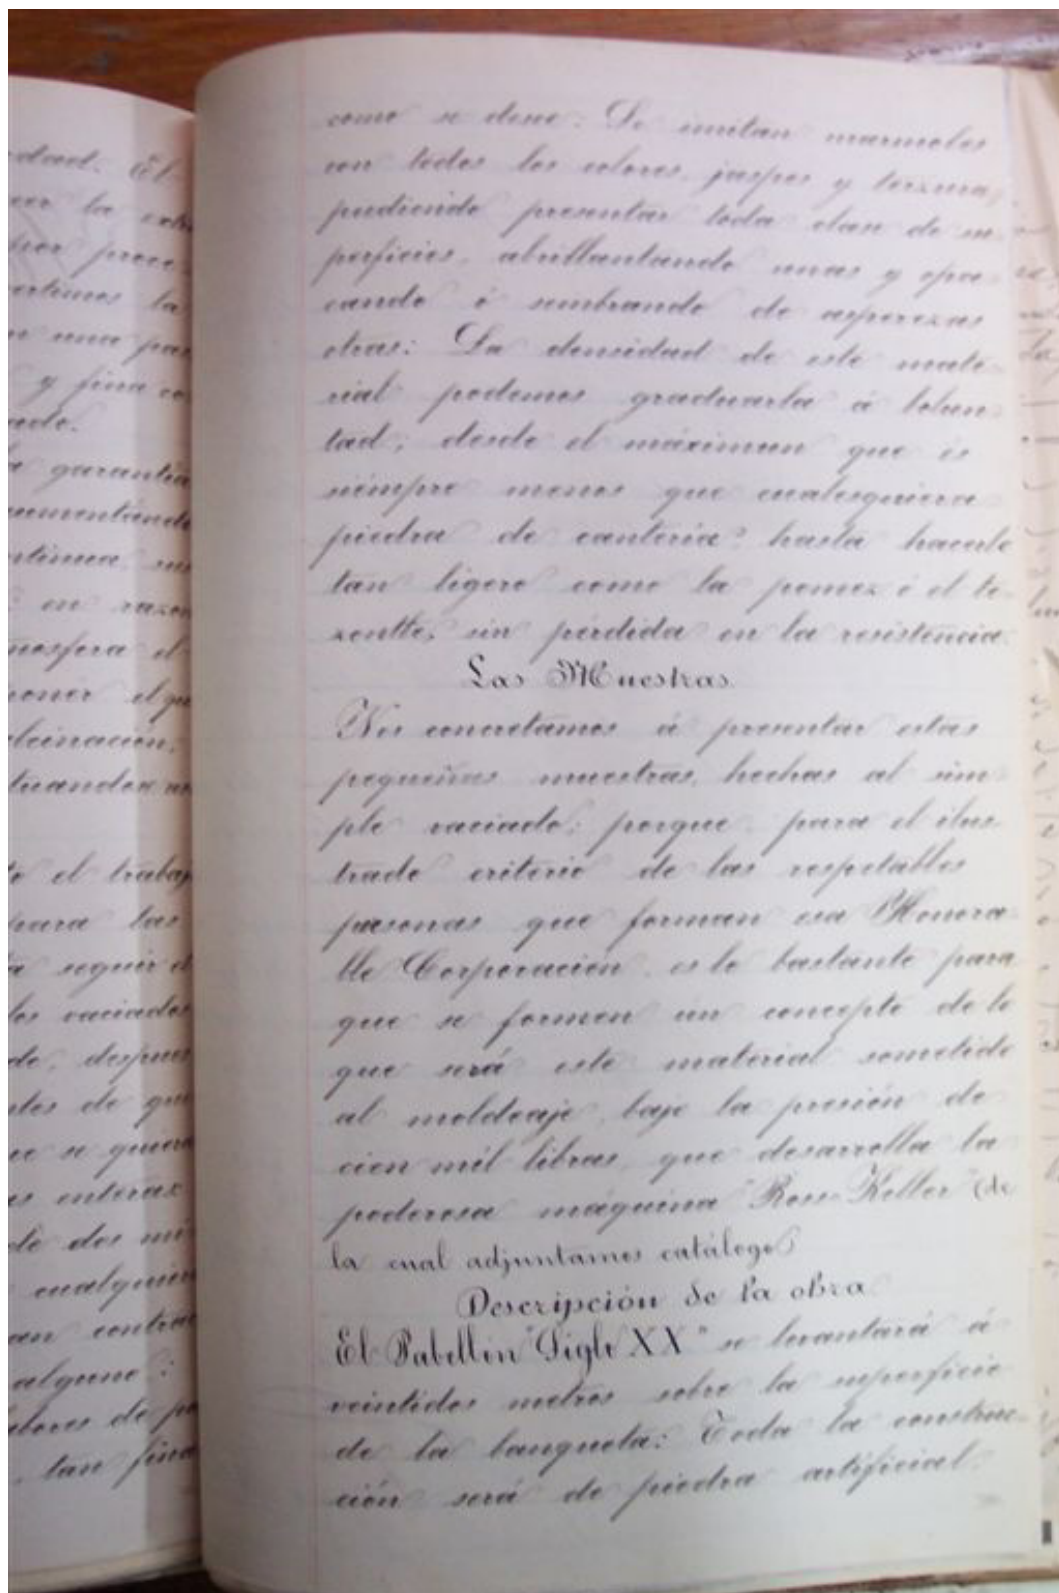 dad. El
cer la
por proce-
vertimos la
n una pas
y fina co
ado.
la garantia
aumentando
ntinua, su
en razon
mosfera el
poner el que
lcinación,
tuandose
to el trabaj
para las
a seguir el
los vaciados
do, despues
ntes de que
ue se quiera
as enteras
de dos mi
cualquier
an contra
alguno:
dores de
, tan fina
como se dese: Se imitan marmoles
con todos los colores, jaspes y tersura,
pudiendo presentar toda clase de su-
perficies, abrillantando unas y opa-
cando ó sembrando de asperezas
otras: La densidad de este mate-
rial podemos graduarla á volun-
tad; desde el máximun que és
siémpre menos que cualesquiera
piedra de cantería; hasta hacerle
tan ligero como la pomez ó el te-
zontle, sin pérdida en la resisténcia.
Las Muestras.
Nos concretamos á presentar estas
pequeñas muestras, hechas al sim-
ple vaciado; porque para el ilus-
trado criterio de las respetables
personas que forman esa Honora-
ble Corporación, es lo bastante para
que se formen ún concepto de lo
que será este material sometido
al moldeaje, bajo la presión de
cien mil libras, que desarrolla la
poderosa máquina "Ross-Keller" (de
la cual adjuntamos catálogo)
Descripción de la obra
El Pabellón "Siglo XX" se levantará á
veintidos metros sobre la superficie
de la banqueta: Toda la construc-
ción será de piedra artificial.